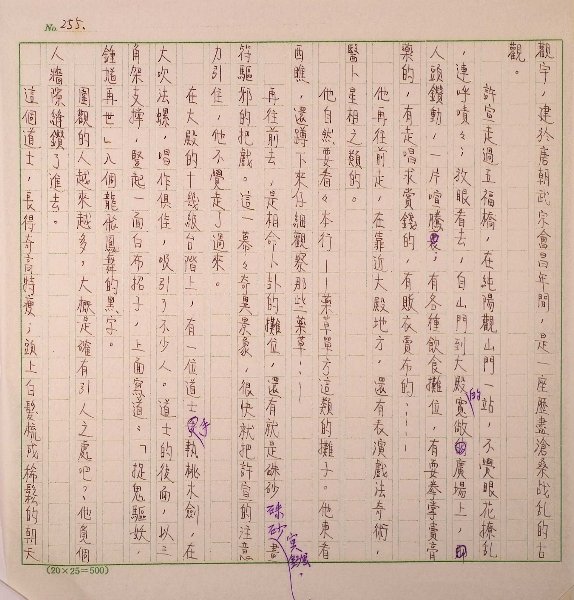 No. 255.
觀宇，建於唐朝武宗會昌年間，是一座歷盡滄桑战乱的古
觀。
許宣走過五福橋，在純陽觀山門一站，不覺眼花撩乱
，連呼嘖々；放眼看去，自山門到大殿的寬敞廣場上，
人頭鑽動，一片喧騰；有各種飲食攤位，有耍拳賣膏
藥的，有走唱求賞錢的，有販衣賣布的……
他再往前走，在靠近大殿地方，還有表演戲法奇術，
醫卜星相之類的。
他自然要看々本行——藥草單方這類的攤子。他東看
西瞧，還蹲下來仔細觀察那些藥草……
再往前去，是相命卜卦的攤位，還有就是硃砂畫
符驅邪的把戲。這一幕々奇異景象，很快就把許宣的注意
力引住，他不覺走了過來。
在大殿的十幾級台階上，有一位道士手執桃木劍，在
大吹法螺，唱作俱佳，吸引了不少人。道士的後面，以三
角架支撐，豎起一面白布招子，上面寫道：「捉鬼驅妖，
鍾馗再世」八個龍飛鳳舞的黑字。
圍觀的人越來越多，大概是確有引人之處吧？他覓個
人牆隙縫鑽了進去。
這個道士，長得奇高特瘦；頭上白髮梳成稀鬆的朝天
硃砂
(20×25=500)